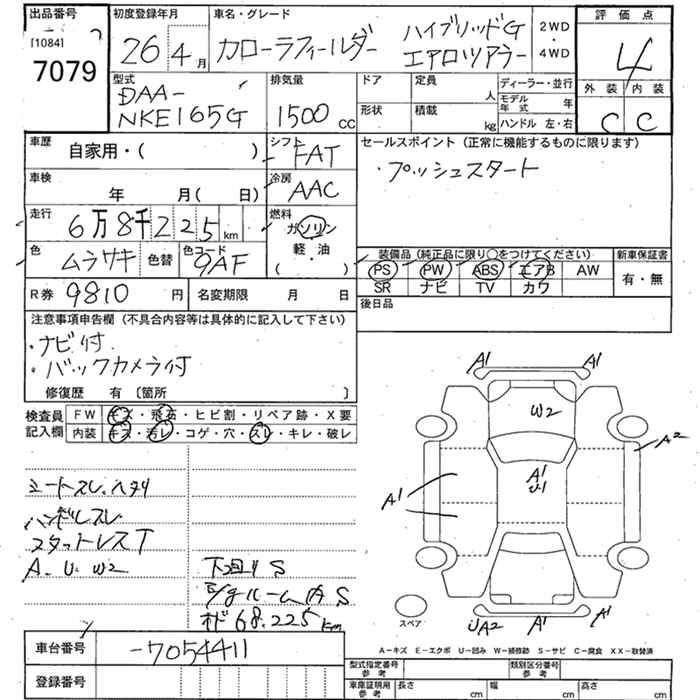 出品番号 初度登録年月 車名・グレード 評価点
[1084] 7079
26年 4月 カローラフィールダー ハイブリッドG エアロツアラー 2WD・4WD 4
型式 排気量 ドア 定員 人 ディーラー・並行 外装 内装
DAA-NKE165G 1500cc 形状 積載 kg モデル年式 年 ハンドル 左・右 C C
車歴 自家用・( ) シフト FAT セールスポイント (正常に機能するものに限ります)
・プッシュスタート
車検 年 月( 日) 冷房 AAC
走行 6万8千225km 燃料 ガソリン 軽・油 ( )
色 ムラサキ 色替 色コード 9AF
装備品 (純正品に限り○をつけてください) 新車保証書
PS PW ABS エアB AW 有・無
SR ナビ TV カワ
R券 9810円 名変期限 月 日 後日品
注意事項申告欄 (不具合内容等は具体的に記入して下さい)
・ナビ付
・バックカメラ付
修復歴 有 〔箇所 〕
検査員記入欄 FW キズ・飛石・ヒビ割・リペア跡・X要
内装 キズ・汚レ・コゲ・穴・スレ・キレ・破レ
シートスレ、ヘタリ
ハンドルスレ
スタットレスT
A.U.W2
下回りS
S
68.225km
A1 A1
W2
A2
A1
U1
A1
UA2 A1 A1
スペア
A-キズ E-エクボ U-凹み W-補修跡 S-サビ C-腐食 XX-取替済
車台番号 -7054411
登録番号
型式指定番号 参考 類別区分番号 参考
車庫証明用 参考 長さ cm 幅 cm 高さ cm